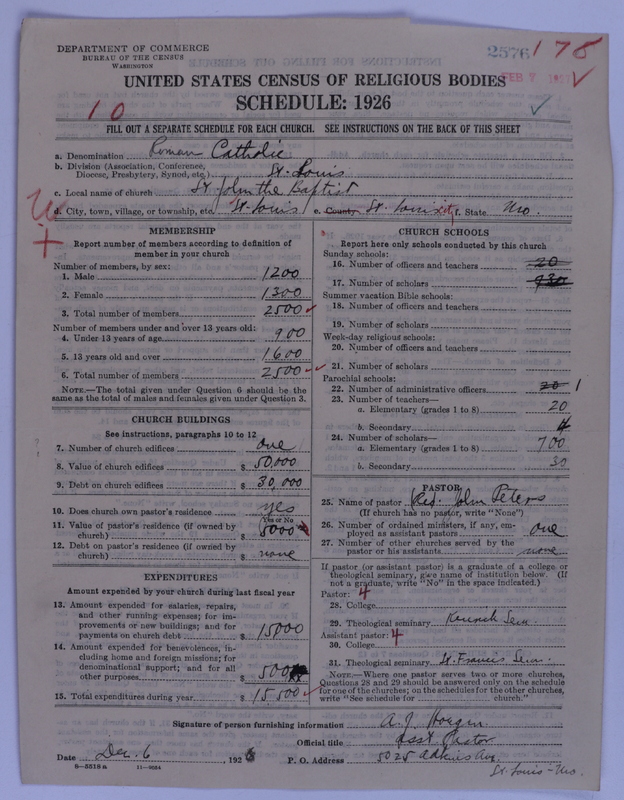 DEPARTMENT OF COMMERCE
BUREAU OF THE CENSUS
WASHINGTON
2576 178
FEB 7
UNITED STATES CENSUS OF RELIGIOUS BODIES
SCHEDULE: 1926
10
FILL OUT A SEPARATE SCHEDULE FOR EACH CHURCH. SEE INSTRUCTIONS ON THE BACK OF THIS SHEET
a. Denomination Roman Catholic
b. Division (Association, Conference, Diocese, Presbytery, Synod, etc.) St. Louis
c. Local name of church St John the Baptist
d. City, town, village, or township, etc. St. Louis e. County St. Louis city f. State Mo.
MEMBERSHIP
Report number of members according to definition of member in your church
Number of members, by sex:
1. Male 1200
2. Female 1300
3. Total number of members 2500
Number of members under and over 13 years old:
4. Under 13 years of age 900
5. 13 years old and over 1600
6. Total number of members 2500
NOTE.—The total given under Question 6 should be the same as the total of males and females given under Question 3.
CHURCH BUILDINGS
See instructions, paragraphs 10 to 12
7. Number of church edifices one
8. Value of church edifices $ 50,000
9. Debt on church edifices $ 30,000
10. Does church own pastor's residence yes
Yes or No
11. Value of pastor's residence (if owned by church) $ 5000
12. Debt on pastor's residence (if owned by church) $ none
EXPENDITURES
Amount expended by your church during last fiscal year
13. Amount expended for salaries, repairs, and other running expenses; for improvements or new buildings; and for payments on church debt $ 15000
14. Amount expended for benevolences, including home and foreign missions; for denominational support; and for all other purposes $ 500
15. Total expenditures during year $ 15500
CHURCH SCHOOLS
Report here only schools conducted by this church
Sunday schools:
16. Number of officers and teachers 20
17. Number of scholars 930
Summer vacation Bible schools:
18. Number of officers and teachers
19. Number of scholars
Week-day religious schools:
20. Number of officers and teachers
21. Number of scholars
Parochial schools:
22. Number of administrative officers 20 1
23. Number of teachers—
a. Elementary (grades 1 to 8) 20
b. Secondary 4
24. Number of scholars—
a. Elementary (grades 1 to 8) 700
b. Secondary 30
PASTOR
25. Name of pastor Rev. John Peters
(If church has no pastor, write "None")
26. Number of ordained ministers, if any, employed as assistant pastors one
27. Number of other churches served by the pastor or his assistants none
If pastor (or assistant pastor) is a graduate of a college or theological seminary, give name of institution below. (If not a graduate, write "No" in the space indicated.)
Pastor: 4
28. College
29. Theological seminary Kenrick Sem
Assistant pastor: 4
30. College
31. Theological seminary St. Francis Sem.
NOTE.—Where one pastor serves two or more churches, Questions 28 and 29 should be answered only on the schedule for one of the churches; on the schedules for the other churches, write "See schedule for church."
Signature of person furnishing information A. J.
Official title Asst Pastor
Date Dec. 6, 1926 P. O. Address 5025 Adkins Ave.
8-5518 a
St. Louis - Mo.